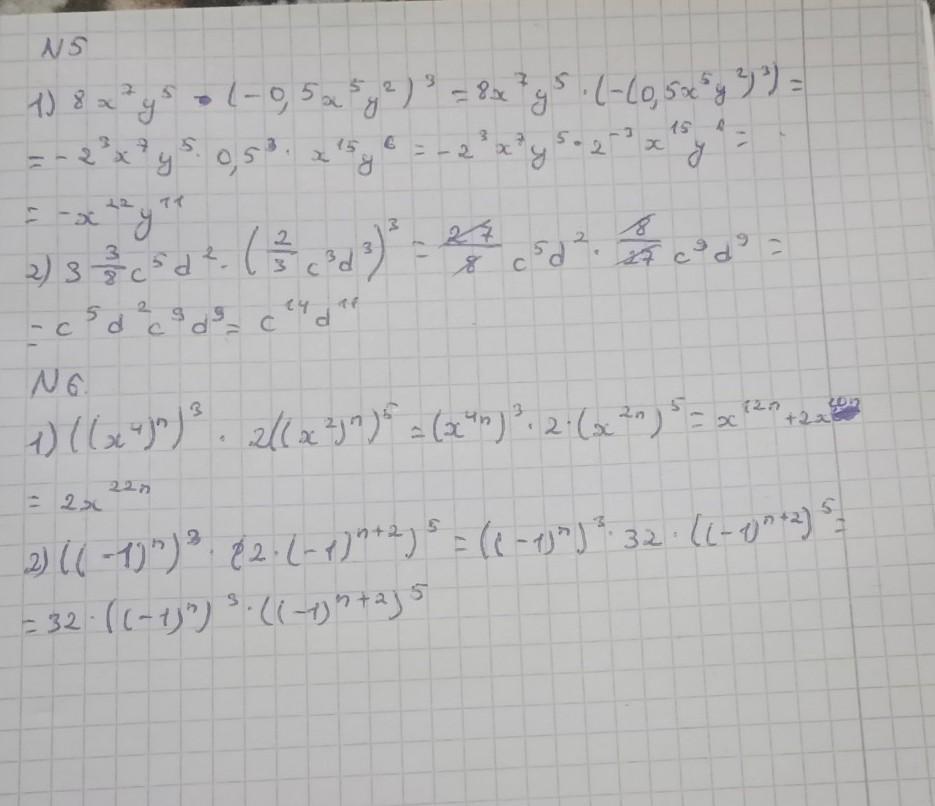 N5
1) 8x⁷y⁵ · (-0,5x⁵y²)³ = 8x⁷y⁵ · (-(0,5x⁵y²)³) =
= -2³x⁷y⁵ · 0,5³ · x¹⁵y⁶ = -2³x⁷y⁵ · 2⁻³x¹⁵y⁶ =
= -x²²y¹¹
2) 3 3/8 c⁵d² · (2/3 c³d³)³ = 27/8 c⁵d² · 8/27 c⁹d⁹ =
= c⁵d²c⁹d⁹ = c¹⁴d¹¹
N6.
1) ((x⁴)ⁿ)³ · 2((x²)ⁿ)⁵ = (x⁴ⁿ)³ · 2 · (x²ⁿ)⁵ = x¹²ⁿ + 2x¹⁰ⁿ
= 2x²²ⁿ
2) ((-1)ⁿ)³ · (2 · (-1)ⁿ⁺²)⁵ = ((-1)ⁿ)³ · 32 · ((-1)ⁿ⁺²)⁵ =
= 32 · ((-1)ⁿ)³ · ((-1)ⁿ⁺²)⁵